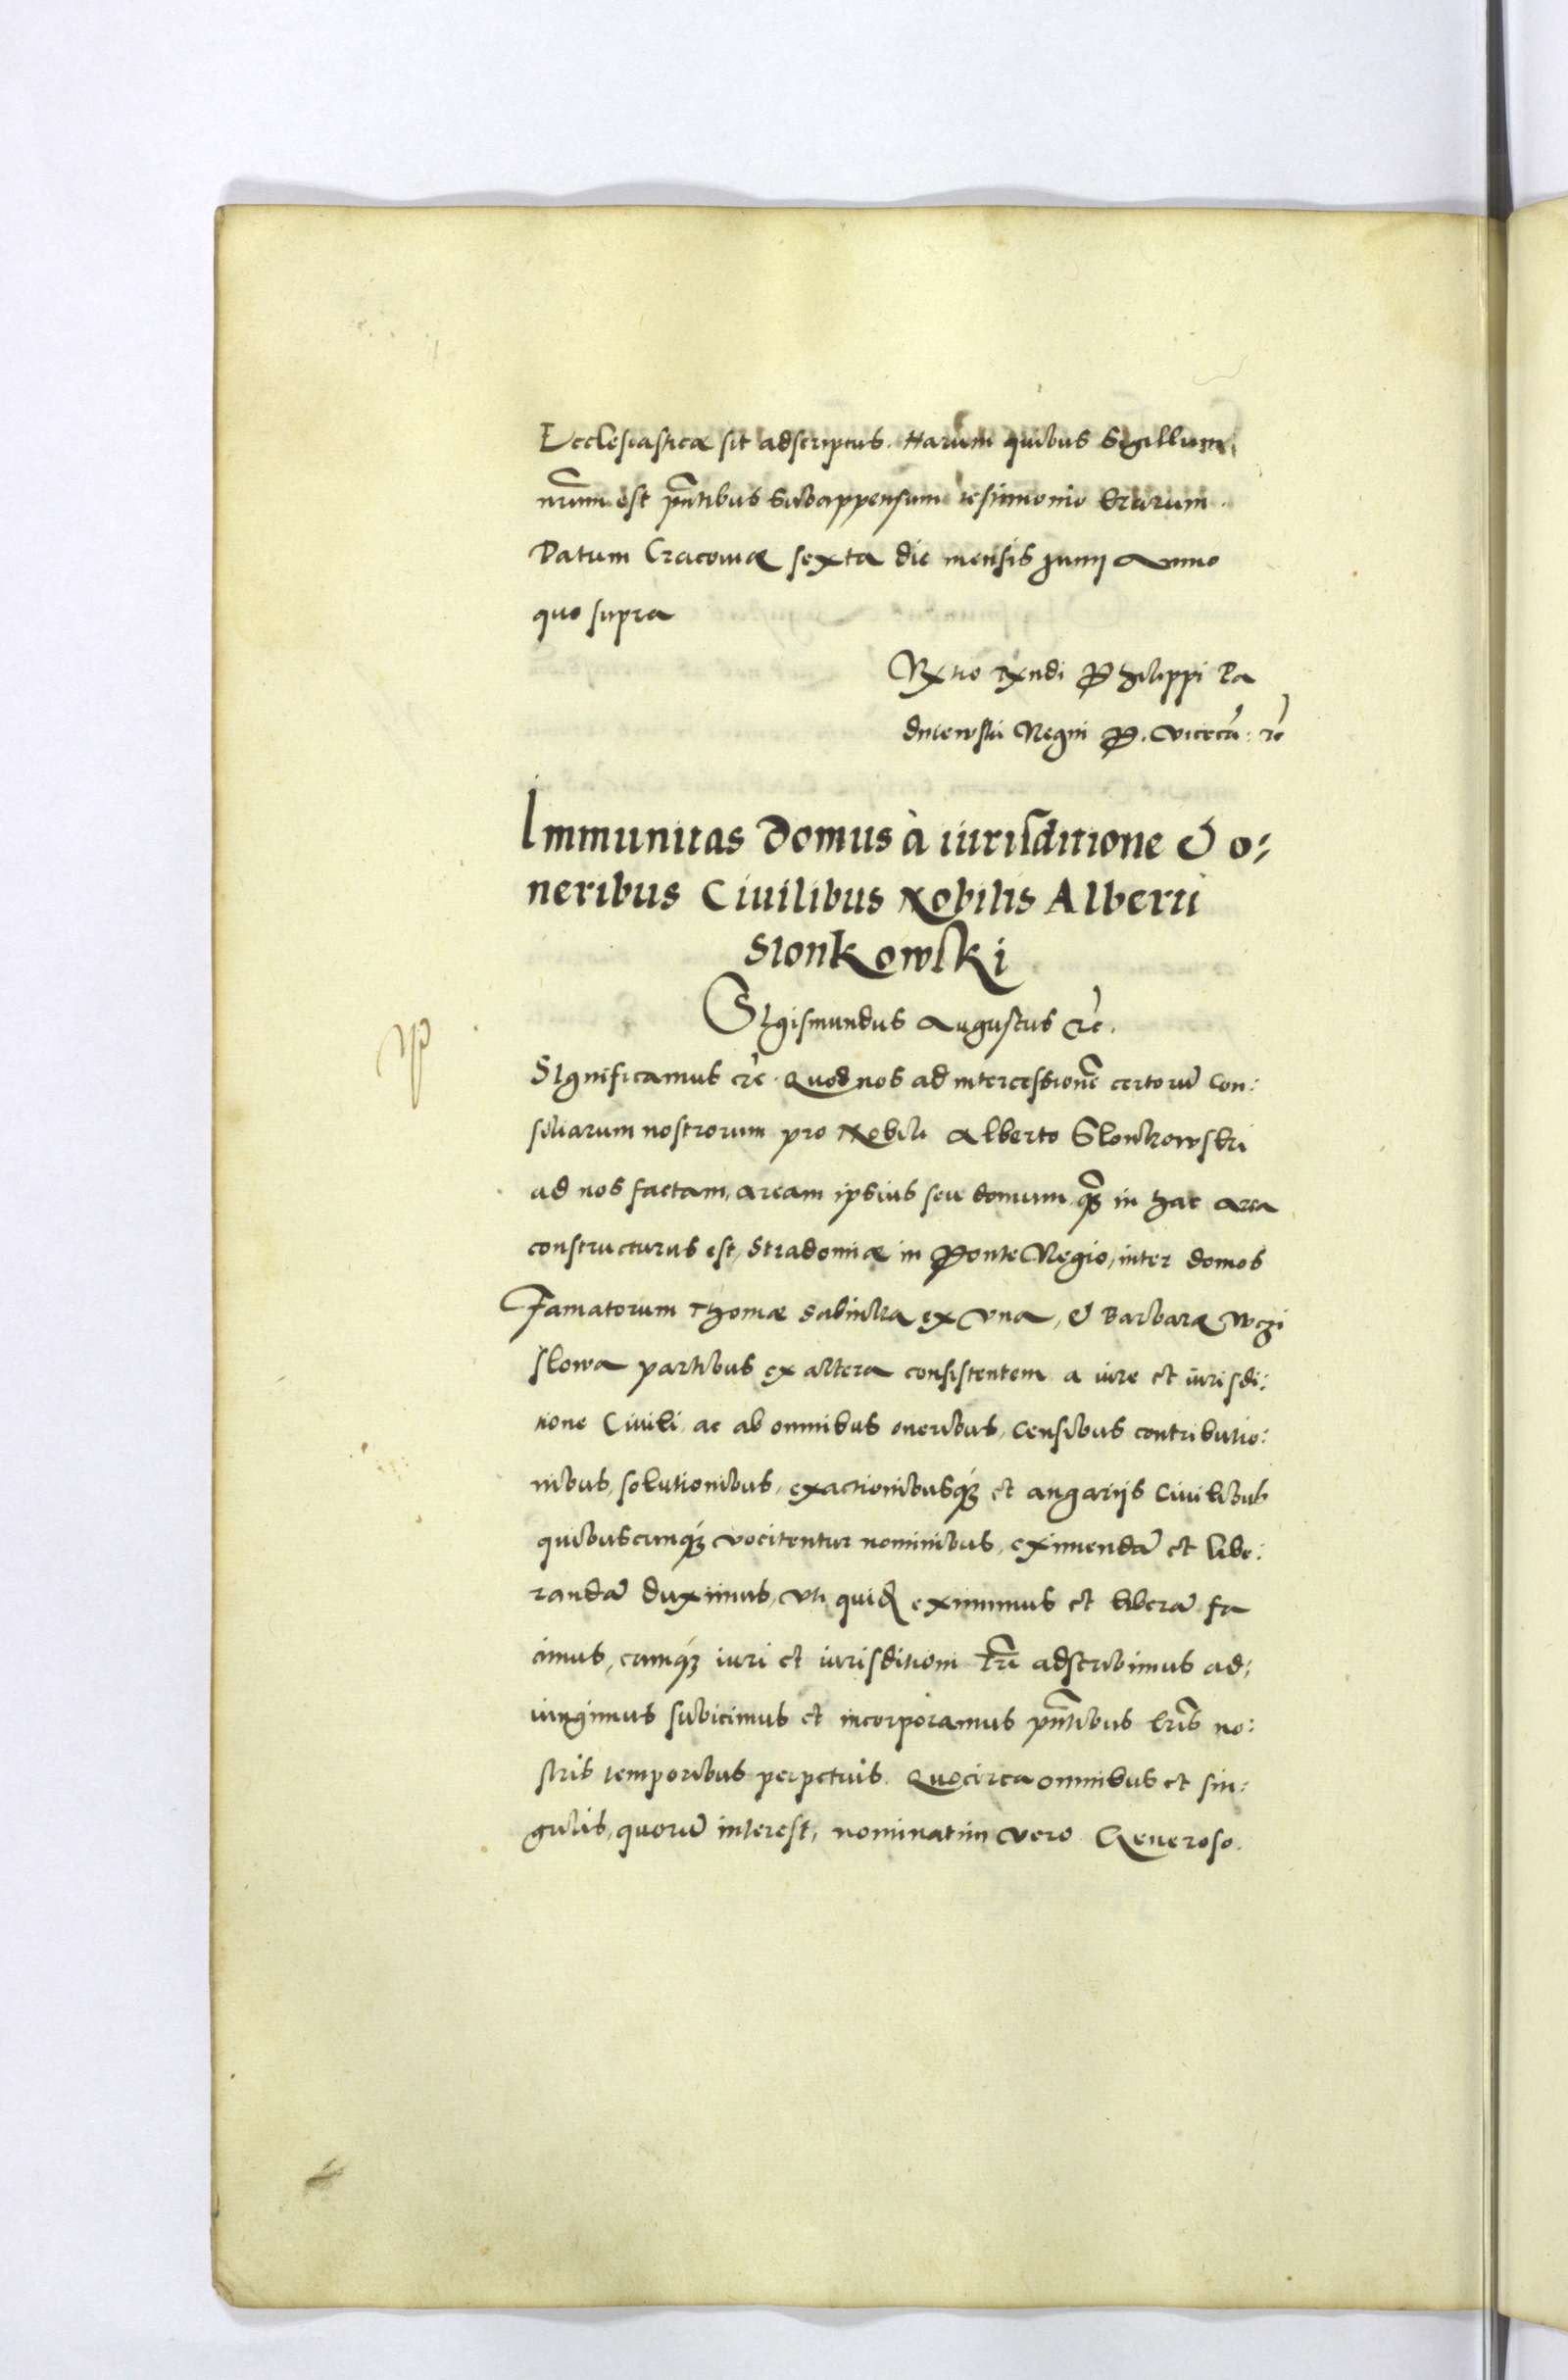 Ecclesiasticæ sit adscriptus. Harum quibus Sigillum
nr̃um est pñtibus Subappensum testimonio l̃rarum.
Datum Cracouiæ sexta die mensis Junij Anno
quo supra
R̃tio R̃ndi Philippi Pa
dniewski Regni P. Vicecã: ꝛc̃
Immunitas Domus à iurisditione & o:
neribus Ciuilibus Nobilis Alberti
Slonkowski
SIgismundus Augustus ꝛc̃.
SIgnificamus ꝛc̃. Quod nos ad intercessionẽ certorũ Con:
siliarum nostrorum pro Nobili Alberto Slonkowski
ad nos factam, aream ipsius seu domum q̃ in hac area
constructurus est, Stradomiæ in Ponte Regio, inter domos
Famatorum Thomæ ex vna, & Barbaræ Wczi
slowa partibus ex altera consistentem a iure et iurisdi:
tione Ciuili, ac ab omnibus oneribus, Censibus contributio:
nibus, solutionibus, exactionibusq́ꝫ et angarijs Ciuilibus
quibuscunq́ꝫ vocitentur nominibus, eximendã et libe:
randã duximus, vti quiđ eximimus et liberã fa
cimus, eamq́ꝫ iuri et iurisditioni tr̃ri adscribimus ad:
iungimus subicimus et incorporamus pñtibus l̃ris no:
stris temporibus perpetuis. Quocirca omnibus et sin:
gulis, quorũ interest, nominatim vero Generoso.